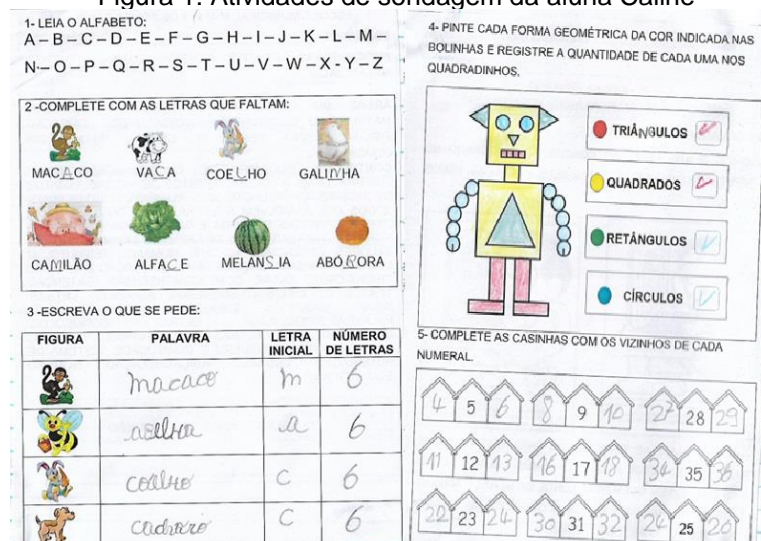 Figura 1: Atividades de sondagem da aluna Caline
1- LEIA O ALFABETO:
A – B – C – D – E – F – G – H – I – J – K – L – M –
N – O – P – Q – R – S – T – U – V – W – X - Y – Z
2 -COMPLETE COM AS LETRAS QUE FALTAM:
MACACO VACA COELHO GALINHA
CAMILÃO ALFACE MELANSIA ABÓRORA
3 -ESCREVA O QUE SE PEDE:
FIGURA PALAVRA LETRA INICIAL NÚMERO DE LETRAS
macaco m 6
a 6
coelho c 6
c 6
4- PINTE CADA FORMA GEOMÉTRICA DA COR INDICADA NAS
BOLINHAS E REGISTRE A QUANTIDADE DE CADA UMA NOS
QUADRADINHOS.
TRIÂNGULOS
QUADRADOS
RETÂNGULOS
CÍRCULOS
5- COMPLETE AS CASINHAS COM OS VIZINHOS DE CADA
NUMERAL.
4 5 6 8 9 10 27 28 29
11 12 13 16 17 18 34 35 36
22 23 24 30 31 32 24 25 26